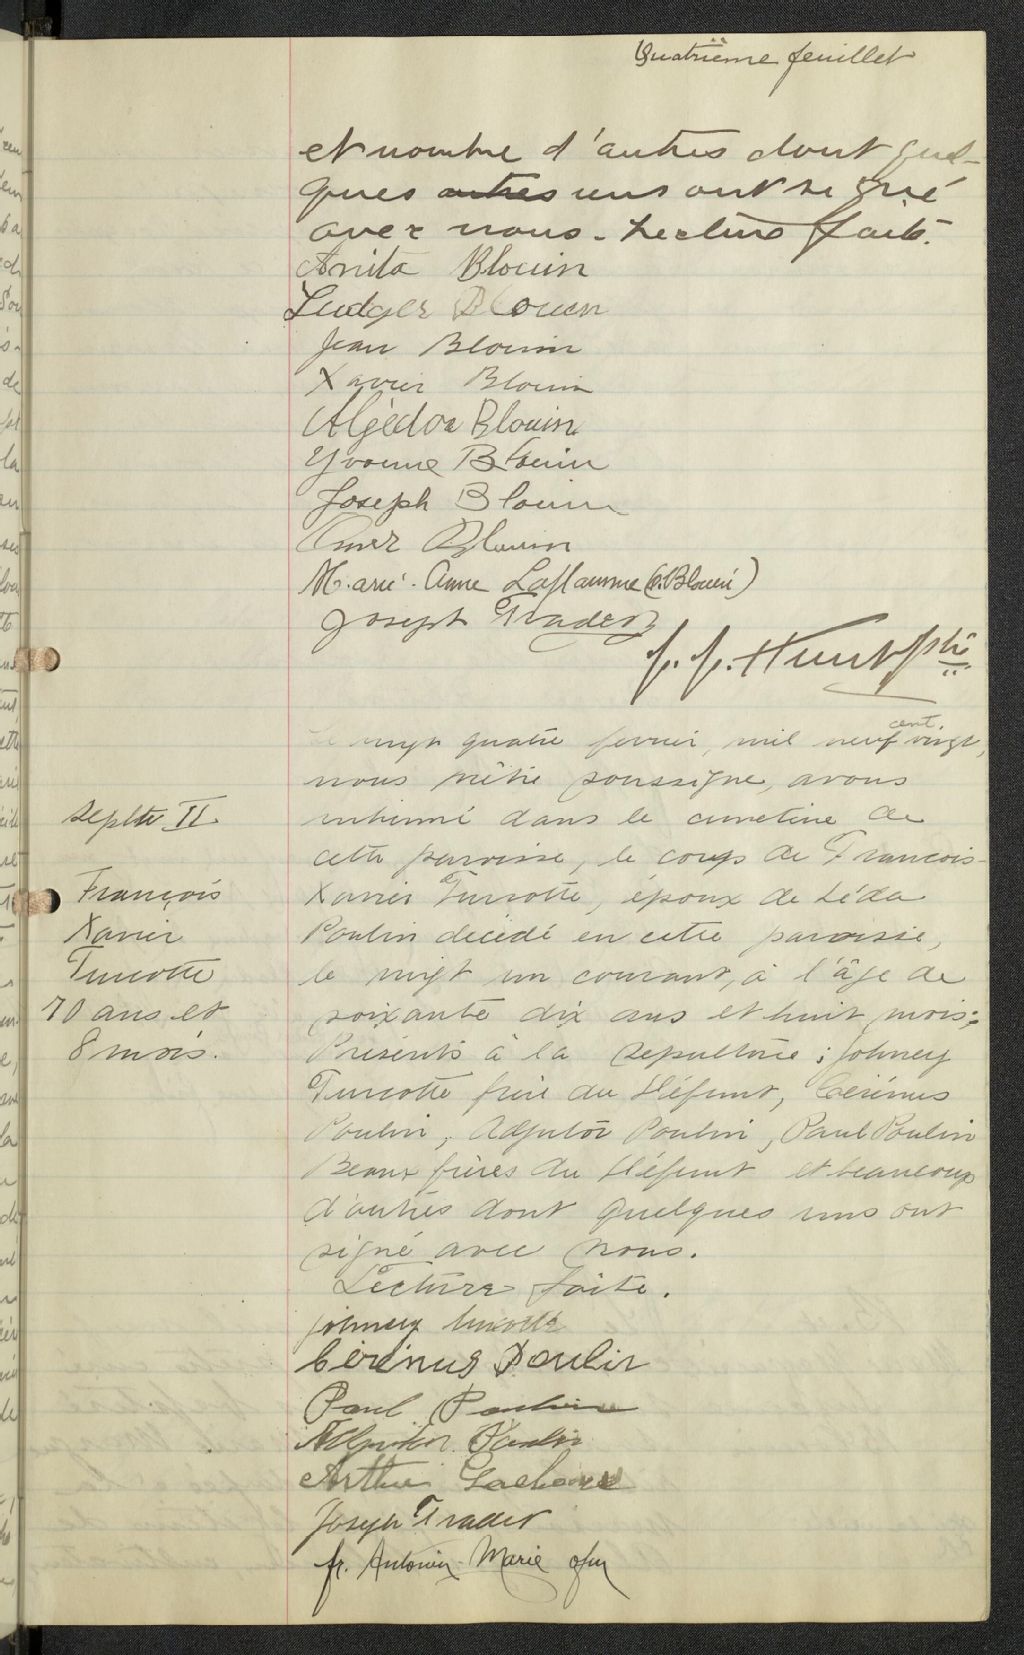 Quatrième feuillet
et nombre d'autres dont quel-
ques autres uns ont signé
avec nous. Lecture faite.
Anita Blouin
Ludger Blouin
Jean Blouin
Xavier Blouin
Algédor Blouin
Yvonne Blouin
Joseph Blouin
Omer Blouin
Marie-Anne Laflamme (e.Blouin)
Joseph Trader
J. J. Hunt Ptre
Le vingt quatre fevrier, mil neuf cent vingt,
nous prêtre soussigne, avons
inhumé dans le cimetière de
cette paroisse, le corps de Francois-
Xavier Turcotte, époux de Léda
Poulin decédé en cette paroisse,
le vingt un courant, à l'âge de
soixante dix ans et huit mois;
Présents à la sepulture; Johney
Turcotte frère du défunt, Cérénus
Poulin, Adjutor Poulin, Paul Poulin
Beaux frères du défunt et beaucoup
d'autres dont quelques uns ont
signé avec nous.
Lecture faite.
Johney Turcotte
Cérénus Poulin
Paul Poulin
Adjutor Poulin
Arthur
Joseph Trader
fr. Antonin-Marie ofm
Sepltre II
François
Xavier
Turcotte
70 ans et
8 mois.